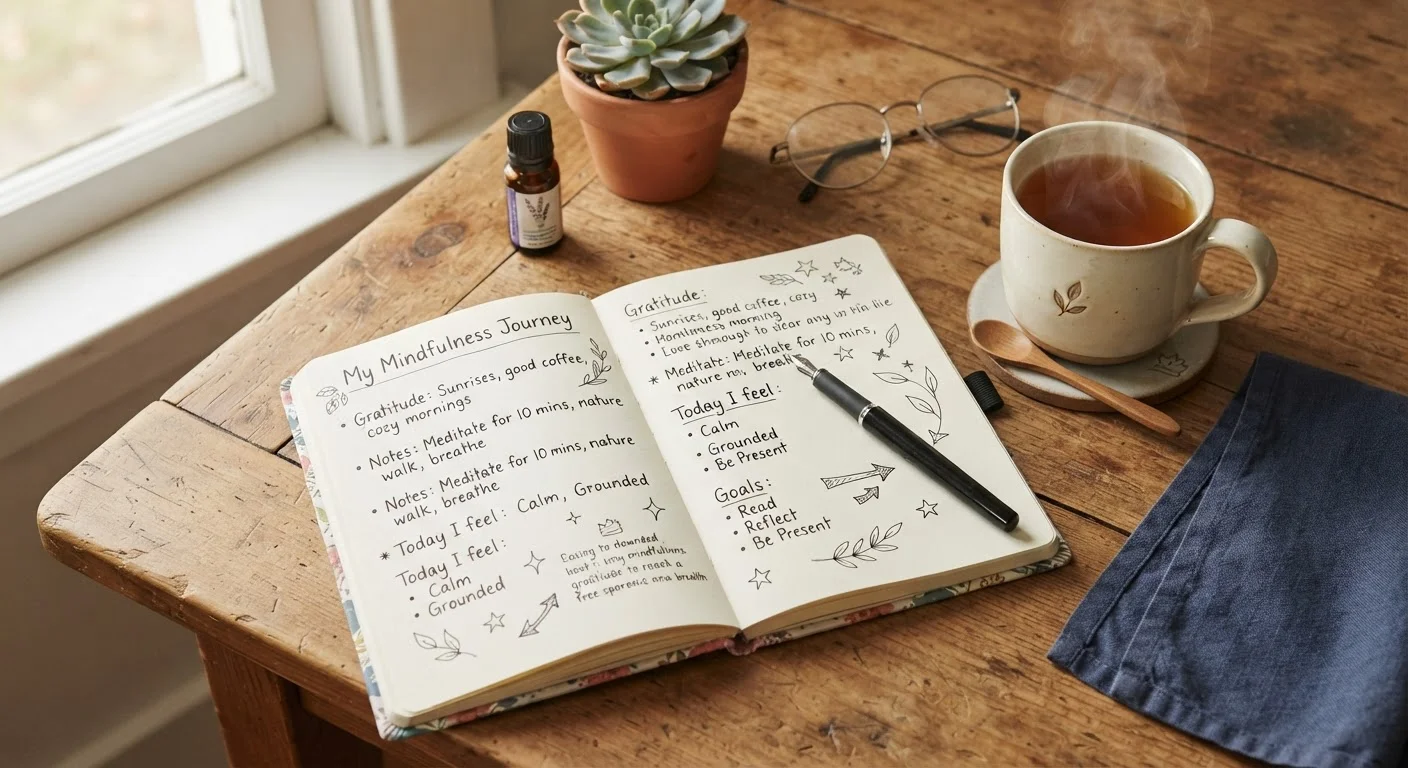 My Mindfulness Journey
• Gratitude: Sunrises, good coffee,
cozy mornings
• Notes: Meditate for 10 mins, nature
walk, breathe
• Notes: Meditate for 10 mins, nature
walk, breathe
* Today I feel: Calm, Grounded
Today I feel:
• Calm
• Grounded
gratitude to reach a
Gratitude:
• Sunrises, good coffee, cozy
morning
• to any in
* Meditate: Meditate for 10 mins,
nature
Today I feel:
• Calm
• Grounded
• Be Present
Goals:
• Read
• Reflect
• Be Present